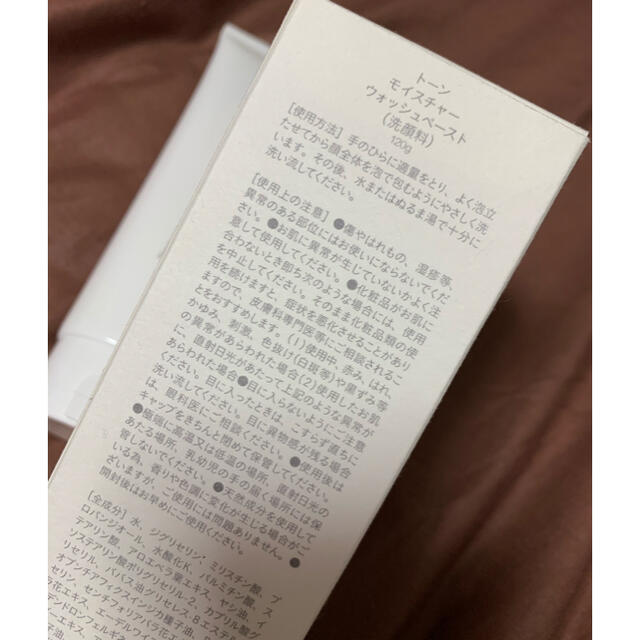 トーン
モイスチャー
ウォッシュペースト
(洗顔料)
120g
[使用方法] 手のひらに適量をとり、よく泡立
たせてから顔全体を泡で包むようにやさしく洗
います。その後、水またはぬるま湯で十分に
洗い流してください。
[使用上の注意] ●傷やはれもの、湿疹等、
異常のある部位にはお使いにならないでくだ
さい。●お肌に異常が生じていないかよく注
意して使用してください。●化粧品がお肌に
合わないとき即ち次のような場合には、使用
を中止してください。そのまま化粧品類の使
用を続けますと、症状を悪化させることがあり
ますので、皮膚科専門医等にご相談されるこ
とをおすすめします。(1)使用中、赤み、はれ、
かゆみ、刺激、色抜け(白斑等)や黒ずみ等
の異常があらわれた場合(2)使用したお肌
に、直射日光があたって上記のような異常が
あらわれた場合●目に入らないようにご注意
ください。目に入ったときは、こすらず直ちに
洗い流してください。目に異物感が残る場合
は、眼科医にご相談ください。●使用後は
キャップをきちんと閉めて保管してください。
●極端に高温又は低温の場所、直射日光の
あたる場所、乳幼児の手の届く場所には保
管しないでください。●天然成分を使用して
いる為、香りや色調に変化が生じる場合がご
ざいますが、ご使用には問題ありません。●
開封後はお早めにご使用ください。
[全成分] 水、ジグリセリン、ミリスチン酸、プ
ロパンジオール、水酸化K、パルミチン酸、ス
テアリン酸、アロエベラ葉エキス、ヤシ油、イ
ソステアリン酸ポリグリセリル-2、カプリル酸グ
リセリル、ババス油グリセレス-8エステル
オプンチアフィクスインジカ種子油、
セリン、センチフォリアバラ花
花エキス、エーデルワイス
デンドロンフェルギネ
子油